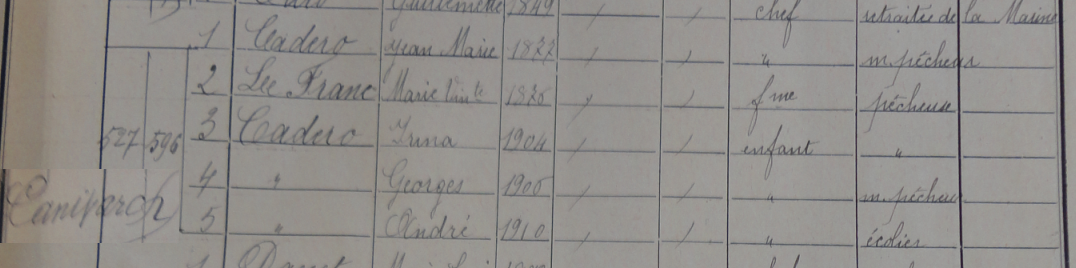 Guillemette 1849 / / chef retraitée de la Marine
1 Cadero Jean Marie 1877 / / " m. pêcheur
2 Le Franc Marie 1876 / / fme pêcheuse
527 596 3 Cadero Irma 1904 / / enfant "
4 " Georges 1906 / / " m. pêcheur
5 " André 1910 / / " écolier
1